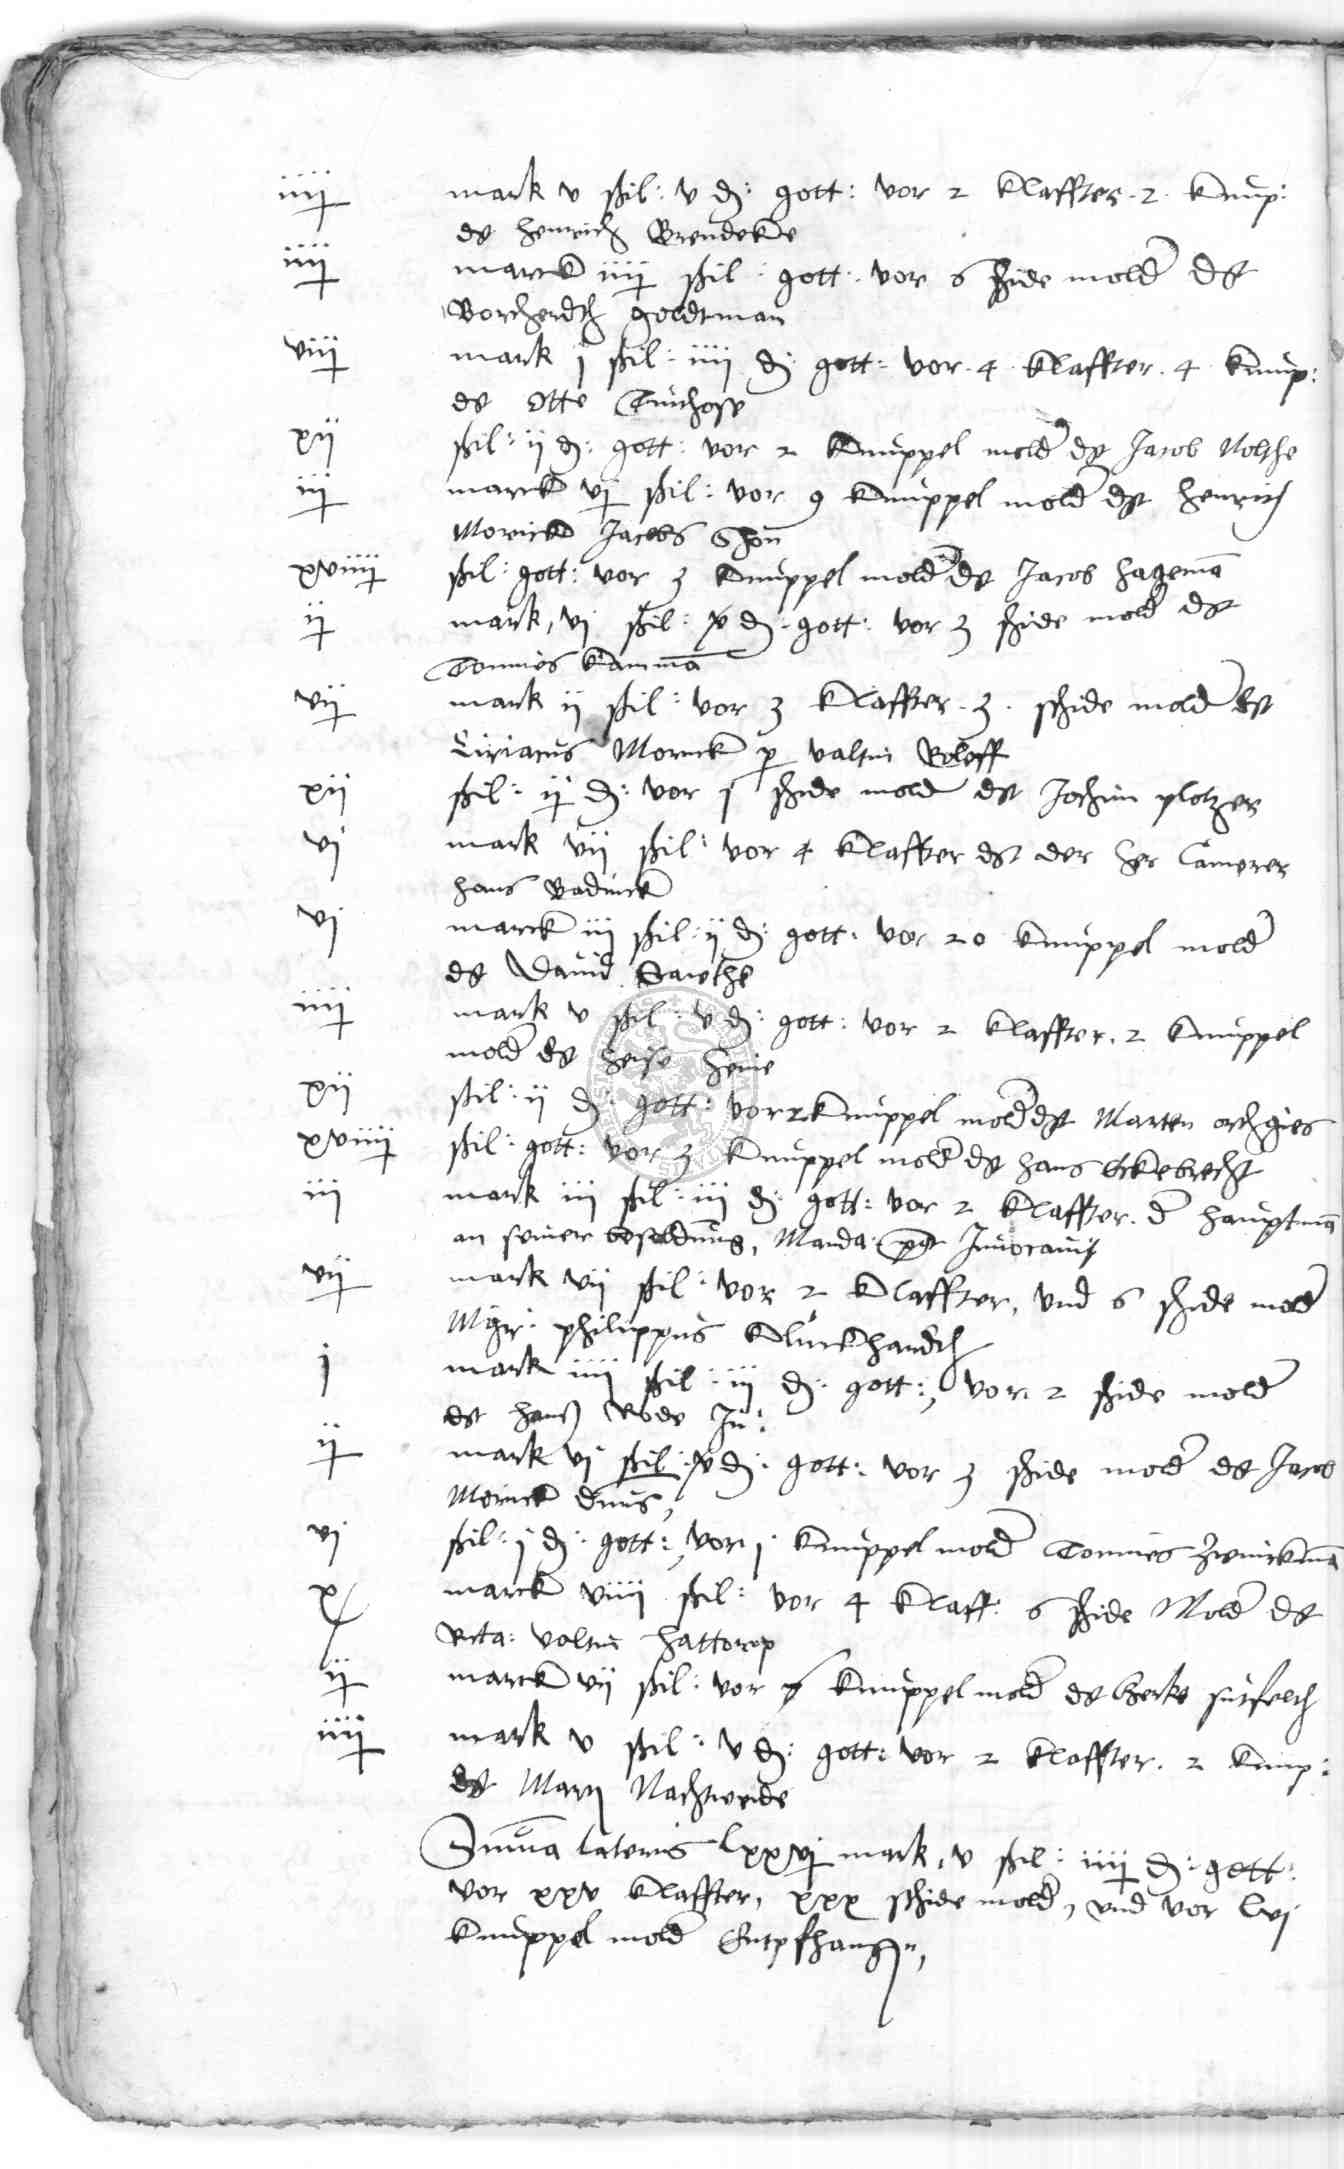 iiii mark v ßil: v d: gott: vor 2 Klaffter. 2. Knup:
dt Henrich Brendeke
iiii marck iiii ßil: gott: vor 6 schide mold dt
Borcherdth Goldtman
viii mark j ßil: iiii d: gott: vor 4 Klaffter. 4 Knup:
dt Otte
xii ßil: ij d: gott: vor 2 Knuppel mold dt Jacob Nolthe
iii marck vj ßil: vor 9 Knuppel mold dt Henrich
Morinck Jacobs Shon
xviiii ßil: gott: vor 3 Knuppel mold dt Jacob Hagemā
ii mark, vj ßil: x d: gott: vor 3 schide mold dt
Tonnies Kammā
vii mark ij ßil: vor 3 Klaffter. 3. schide mold dt
Ciriacus Morinck p valtin Roloff
xii ßil: ij d: vor j schide mold dt Jochim plotzer
vj mark vii ßil: vor 4 Klaffter dt der her Camerer
Hans Radinck
vj marck iii ßil: ij d: gott: vor 20 Knuppel mold
dt Dauid
iiii mark v ßil: v d: gott: vor 2 Klaffter. 2 Knuppel
mold dt Heise Heine
xii ßil: ii d: gott: vor 2 Knuppel mold dt Marten
xviiii ßil: gott: vor 3 Knuppel mold dt Hans Eckebrecht
iii mark iii ßil: iii d: gott: vor 2 Klaffter. d Hauptmā
an seiner besoldung, Manda: post Inuocauit
vii mark vii ßil: vor 2 Klaffter, vnd 6 schide mold
Mgr: Philippus Klunckhardth
j mark iiii ßil: iii d: gott:, vor 2 schide mold
dt Hans Rode Ju:
ii mark vj ßil: x d: gott: vor 3 schide mold dt Jacob
Morinck
vj ßil: j d: gott:, vor j Knuppel mold Tonnies Zwinckmā
x marck viiii ßil: vor 4 Klaff: 6 schide Mold dt
Valtin Hattorp
ii marck vii ßil: vor Knuppel mold dt
iiii mark v ßil: v d: gott: vor 2 Klaffter. 2 Knup:
dt Marx Nachtweide
Suma lateris lxxvj mark, v ßil: iiii d: gott:
vor xxv Klaffter, xxx schide mold, vnd vor lvj
Knuppel mold Entpfhangn,